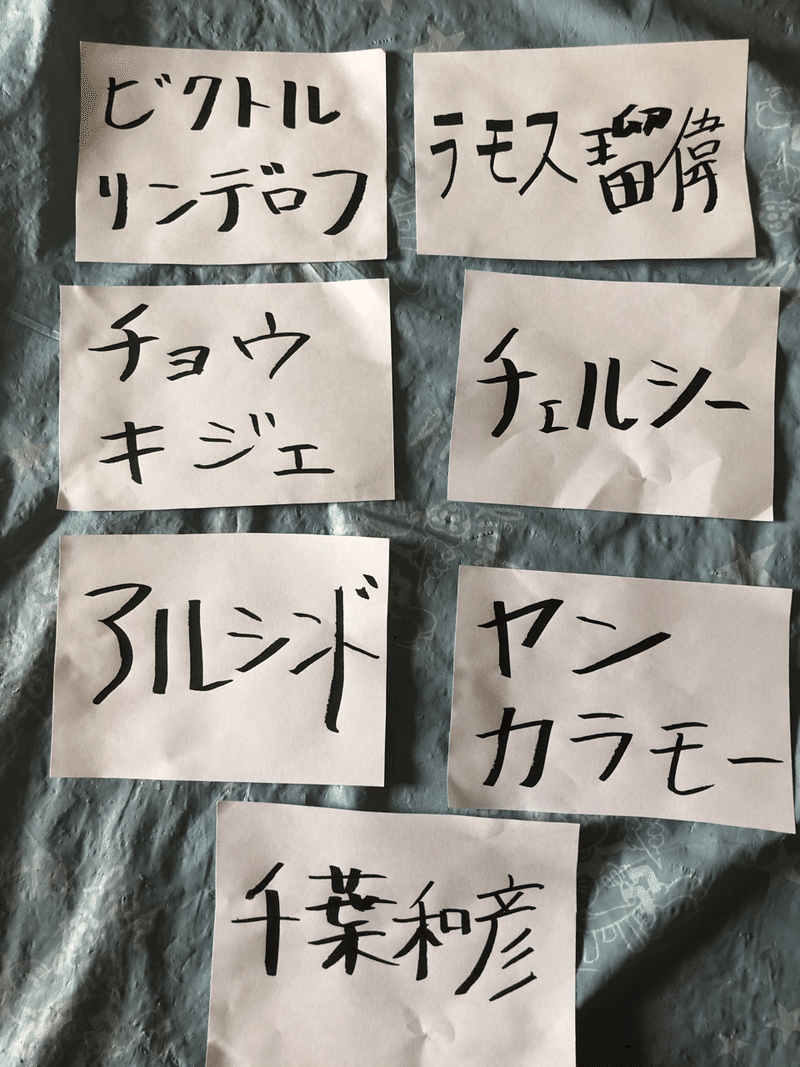 ビクトル
リンデロフ
ラモス瑠偉
チョウ
キジェ
チェルシー
アルシンド
ヤン
カラモー
千葉和彦